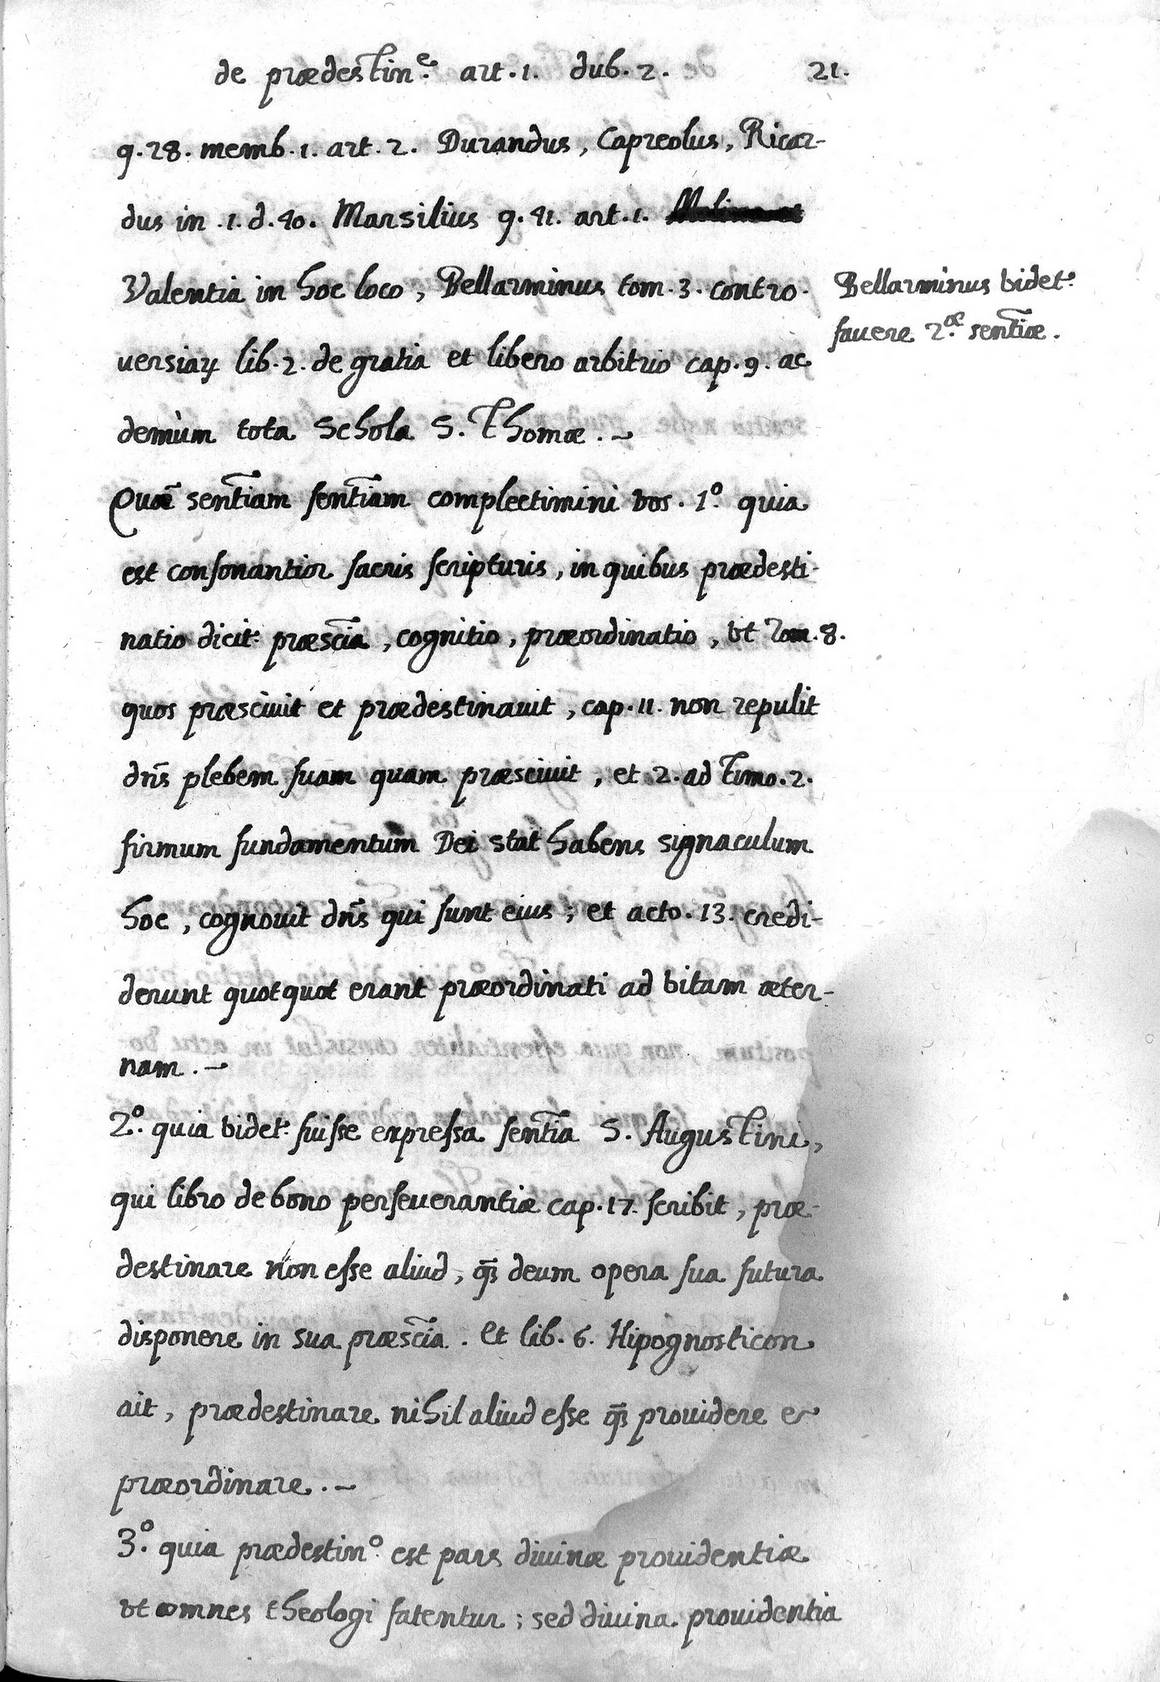 de prædestin.ᵉ art. 1. dub. 2. 21.
q. 28. memb. 1. art. 2. Durandus, Capreolus, Ricar-
dus in .1. d. 40. Marsilius q. 41. art. 1.
Valentia in hoc loco, Bellarminus tom. 3. contro-
uersiaꝝ lib. 2. de gratia et libero arbitrio cap. 9. ac
demùm tota Schola S. Thomæ. ~
Bellarminus videt.
fauere 2.æ sent̃iæ.
Quã sent̃iam sent̃iam complectimini vos. 1.º quia
est consonantior sacris scripturis, in quibus prædesti-
natio dicit. præsc̃ia, cognitio, præordinatio, vt Rom. 8.
quos præsciuit et prædestinauit, cap. 11. non repulit
dñs plebem suam quam præsciuit, et 2. ad Timo. 2.
firmum fundamentum Dei stat habens signaculum
hoc, cognouit dñs qui sunt eius; et acto. 13. credi-
derunt quotquot erant præordinati ad vitam æter-
nam. ~
2.º quia videt. fuisse expressa sent̃ia S. Augustini,
qui libro de bono perseuerantiæ cap. 17. scribit, præ-
destinare non esse aliud, q̃ȝ deum opera sua futura
disponere in sua præsc̃ia. Et lib. 6. Hipognosticon
ait, prædestinare nihil aliud esse q̃ȝ prouidere et
præordinare. ~
3.º quia prædestin.º est pars diuinæ prouidentiæ
vt omnes theologi fatentur; sed diuina prouidentia